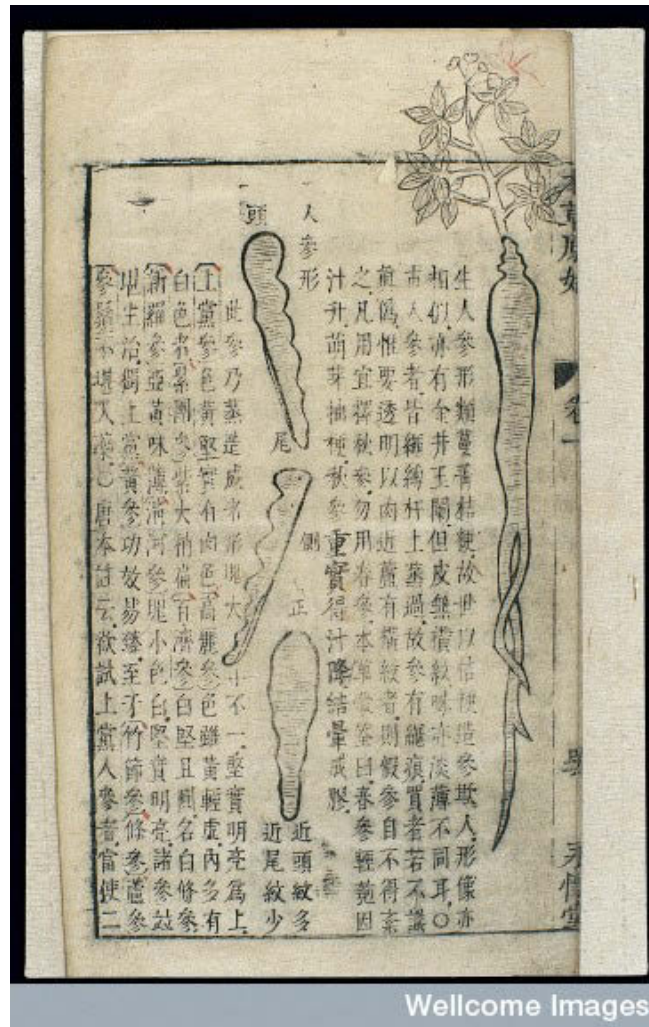 本草原始
卷一
永懷堂
生人參形類蔓菁桔梗.故世以桔梗造參欺人.形像亦
相似.亦有金井玉闌.但皮無橫紋.味亦淡薄不同耳.○
市人參者.皆繩縛杆上蒸過.故參有繩痕.買者若不識
真偽.惟要透明以肉近蘆有橫紋者.則假參自不得紊
之.凡用宜擇秋參.勿用春參.本草發筌曰.春參輕匏.因
汁升萌芽抽梗.秋參重實.得汁降結暈成膠.
人參形
頭
尾
側
正
近頭紋多
近尾紋少
此參乃蒸造成者.形塊大小不一.堅實明亮爲上.
上黨參色黃堅實有肉色.高麗參色雖黃輕虛.內多有
白色者.紫團參紫大稍扁.百濟參白堅且圓.名白條參.
新羅參亞黃味薄.河參塊小色白.堅實明亮.諸參
地生治.獨上黨黃參功效易臻.至于竹節參.條參.蘆參
參鬚不堪入藥.○唐本註云.欲試上黨人參者.當使二
Wellcome Images